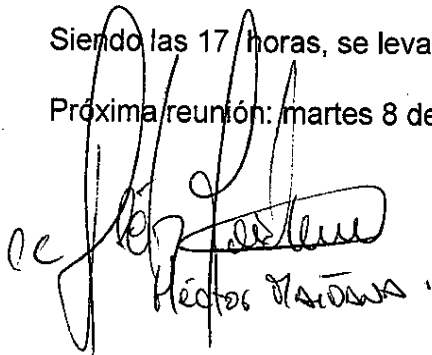 Siendo las 17 horas, se leva
Próxima reunión: martes 8 de
Héctor